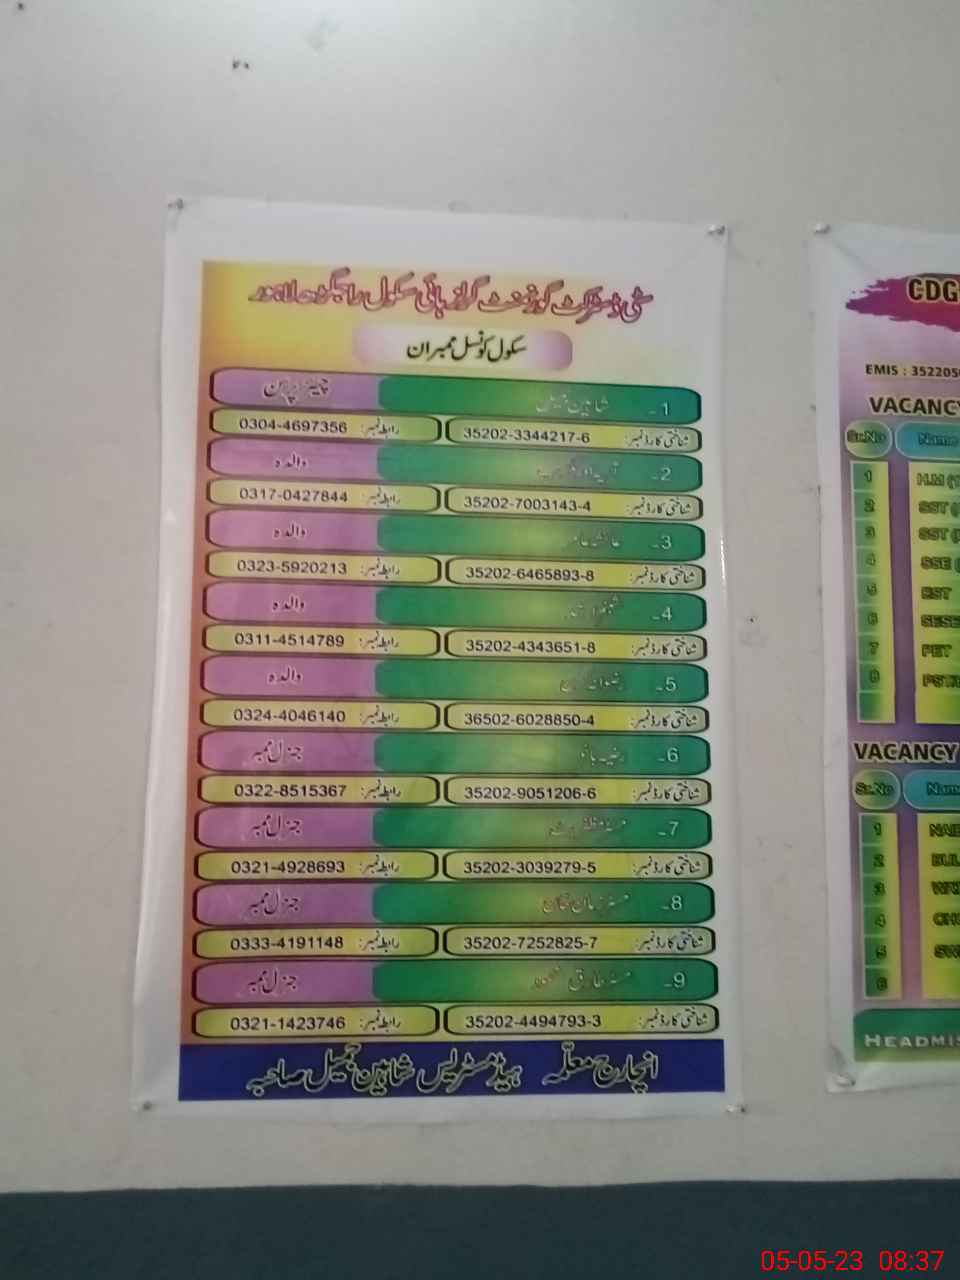 سٹی ڈسٹرکٹ گورنمنٹ گرلز ہائی سکول راجگڑھ لاہور
سکول کونسل ممبران
1۔ شاہین جمیل چیئرپرسن
شناختی کارڈ نمبر: 35202-3344217-6 رابطہ نمبر: 0304-4697356
2۔ والدہ
شناختی کارڈ نمبر: 35202-7003143-4 رابطہ نمبر: 0317-0427844
3۔ عائشہ عامر والدہ
شناختی کارڈ نمبر: 35202-6465893-8 رابطہ نمبر: 0323-5920213
4۔ والدہ
شناختی کارڈ نمبر: 35202-4343651-8 رابطہ نمبر: 0311-4514789
5۔ رضوانہ والدہ
شناختی کارڈ نمبر: 36502-6028850-4 رابطہ نمبر: 0324-4046140
6۔ رضیہ بانو جنرل ممبر
شناختی کارڈ نمبر: 35202-9051206-6 رابطہ نمبر: 0322-8515367
7۔ مسز مظفر جنرل ممبر
شناختی کارڈ نمبر: 35202-3039279-5 رابطہ نمبر: 0321-4928693
8۔ مسز زمان خان جنرل ممبر
شناختی کارڈ نمبر: 35202-7252825-7 رابطہ نمبر: 0333-4191148
9۔ مسز طارق محمود جنرل ممبر
شناختی کارڈ نمبر: 35202-4494793-3 رابطہ نمبر: 0321-1423746
انچارج معلمہ ہیڈمسٹریس شاہین جمیل صاحبہ
CDG
EMIS : 352205
VACANCY
Sr.No Name
1 H.M
2 SST
3 SST
4 SSE
5 EST
6 SESE
7 PET
8
VACANCY
Sr.No Nam
1 NAI
2
3
4
5 SW
6
HEADMIS
05-05-23 08:37